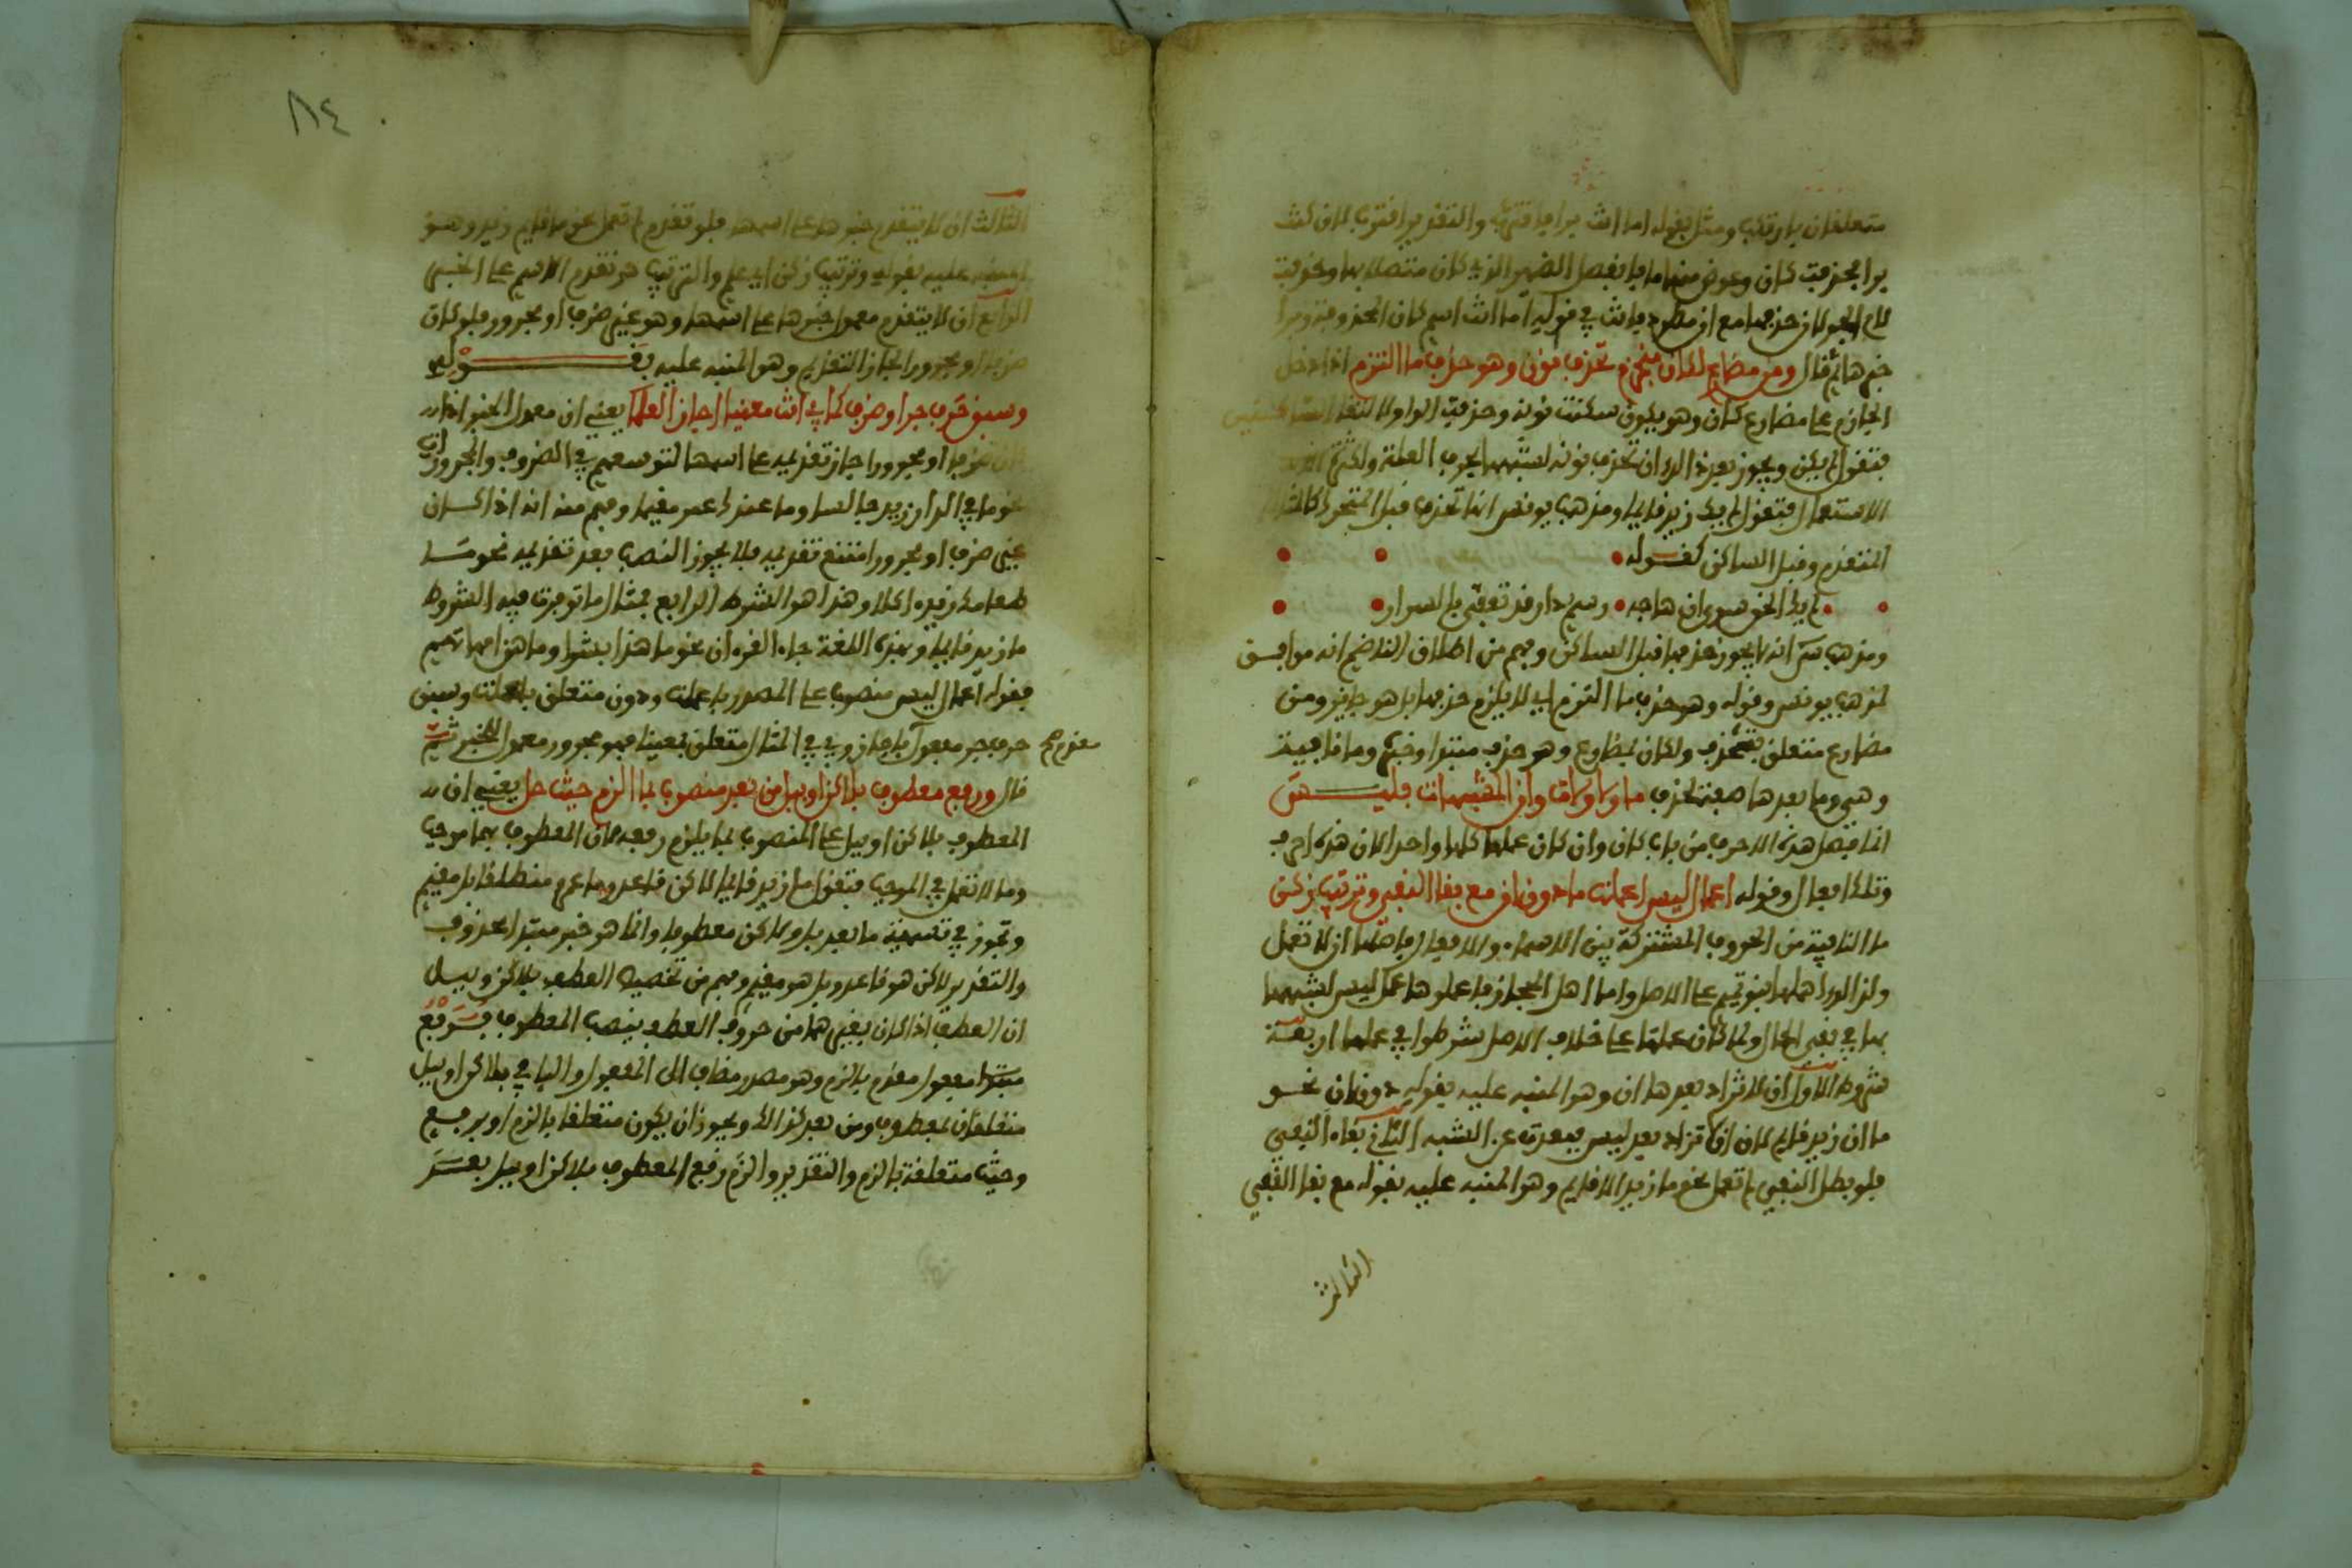 متعلقان بارتكب ومثل بقوله اما انت برا فاقترب والتقدير اقترب لان كنت
برا فحذفت كان وعوض منها ما فانفصل الضمير الذي كان متصلا بها وحذفت
لام الجر لان حذفها مع ان مطرد فانت في قوله اما انت اسم كان المحذوفة وبرا
خبرها ثم قال ومن مضارع لكان منجزم تحذف نون وهو حذف ما التزم اذا دخل
الجازم على مضارع كان وهو يكون سكنت نونه وحذفت الواو لالتقاء الساكنين
فتقول لم يكن ويجوز بعد ذلك ان تحذف نونه لشبهها بحرف العلة ولكثرة
الاستعمال فتقول لم يك زيد قائما ومذهب يونس انها تحذف قبل المتحرك كالمثال
المتقدم وقبل الساكن كقوله
لم يك الحق سوى ان هاجه رسم دار قد تعفى بالسرار
ومذهب س انه لا يجوز حذفها قبل الساكن وفهم من اطلاق الناظم انه موافق
لمذهب يونس وقوله وهو حذف ما التزم اي لا يلزم حذفها بل هو جائز ومن
مضارع متعلق بتحذف ولكان بمضارع وهو حذف مبتدا وخبر وما نافية
وهي وما بعدها صفة لحذف ما ولا ولات وان المشبهات بليس
انما فصل هذه الاحرف من باب كان وان كان عملها كلها واحدا لان هذه احرف
وتلك افعال وقوله اعمال ليس اعملت ما دون ان مع بقا النفي وترتيب زكن
ما النافية من الحروف المشتركة بين الاسماء والافعال فاصلها ان لا تعمل
ولذلك اهملها بنو تميم على الاصل واما اهل الحجاز فاعملوها عمل ليس لشبهها
بها في نفي الحال ولما كان عملها على خلاف الاصل شرطوا في عملها اربعة
شروط الاول ان لا تزاد بعدها ان وهو المنبه عليه بقوله دون ان نحو
ما ان زيد قائم لان ان لا تزاد بعد ليس فبعدت عن الشبه الثاني بقاء النفي
فلو بطل النفي لم تعمل نحو ما زيد الا قائم وهو المنبه عليه بقوله مع بقا النفي
الثالث
٨٤
الثالث ان لا يتقدم خبرها على اسمها فلو تقدم لم تعمل نحو ما قائم زيد وهو
المنبه عليه بقوله وترتيب زكن اي علم والترتيب هو تقدم الاسم على الخبر
الرابع ان لا يتقدم معمول خبرها على اسمها وهو غير ظرف او مجرور فلو كان
ظرفا او مجرورا لجاز التقديم وهو المنبه عليه بقوله
وسبق حرف جر او ظرف كما بي انت معنيا اجاز العلما يعني ان معمول الخبر اذا
كان ظرفا او مجرورا جاز تقديمه على اسمها لتوسعهم في الظروف والمجرورات
نحو ما في الدار زيد جالسا وما عندك عمر مقيما وفهم منه انه اذا كان
غير ظرف او مجرور امتنع تقديمه فلا يجوز النصب بعد تقديمه نحو ما
طعامك زيد اكلا وهذا هو الشرط الرابع فمثال ما توفرت فيه الشروط
ما زيد قائما وبهذه اللغة جاء القرءان نحو ما هذا بشرا وما هن امهاتهم
فقوله اعمال ليس منصوب على المصدر باعملت ودون متعلق باعملت وسبق
حرف جر مفعول باجاز وبي في المثال متعلق بمعنيا فهو مجرور معمول للخبر ثم
مقدم صح
قال ورفع معطوف بلاكن او ببل من بعد منصوب بما الزم حيث حل يعني ان
المعطوف بلاكن او ببل على المنصوب بما يلزم رفعه لان المعطوف بهما موجب
وما لا تعمل في الموجب فتقول ما زيد قائما لاكن قاعد وما عمرو منطلقا بل مقيم
وتجوز في تسمية ما بعد بل ولاكن معطوفا وانما هو خبر مبتدا محذوف
والتقدير لاكن هو قاعد وبل هو مقيم وفهم من تخصيصه العطف بلاكن وببل
ان العطف اذا كان بغيرهما من حروف العطف ينصب المعطوف فرفع
مبتدا مفعول مقدم بالزم وهو مصدر مضاف الى المفعول والبا في بلاكن او ببل
متعلقان بمعطوف ومن بعد كذلك ويجوز ان يكون متعلقا بالزم او برفع
وحيث متعلقة بالزم والتقدير والزم رفع المعطوف بلاكن او ببل بعد